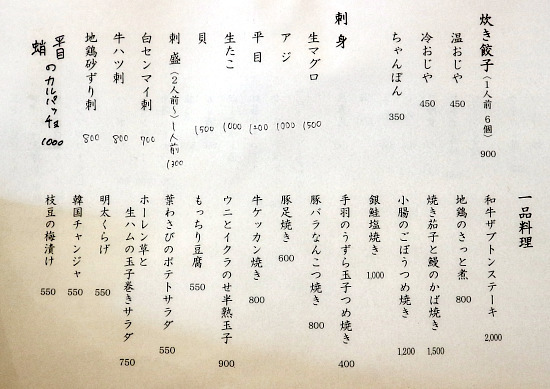 炊き餃子(1人前 6個) 900
温おじや 450
冷おじや 450
ちゃんぽん 350
刺身
生マグロ 1500
アジ 1000
平目 1200
生たこ 1000
貝 1500
刺盛(2人前〜)1人前 1300
白センマイ刺 700
牛ハツ刺 800
地鶏砂ずり刺 800
平目
蛸のカルパッチョ 1000
一品料理
和牛ザブトンステーキ 2,000
地鶏のさっと煮 800
焼き茄子と鰻のかば焼き 1,500
小腸のごぼうつめ焼き 1,200
銀鮭塩焼き 1,000
手羽のうずら玉子つめ焼き 400
豚バラなんこつ焼き 800
豚足焼き 600
牛ゲッカン焼き 800
ウニとイクラのせ半熟玉子 900
もっちり豆腐 550
葉わさびのポテトサラダ 550
ホーレン草と
生ハムの玉子巻きサラダ 750
明太くらげ 550
韓国チャンジャ 550
枝豆の梅漬け 550